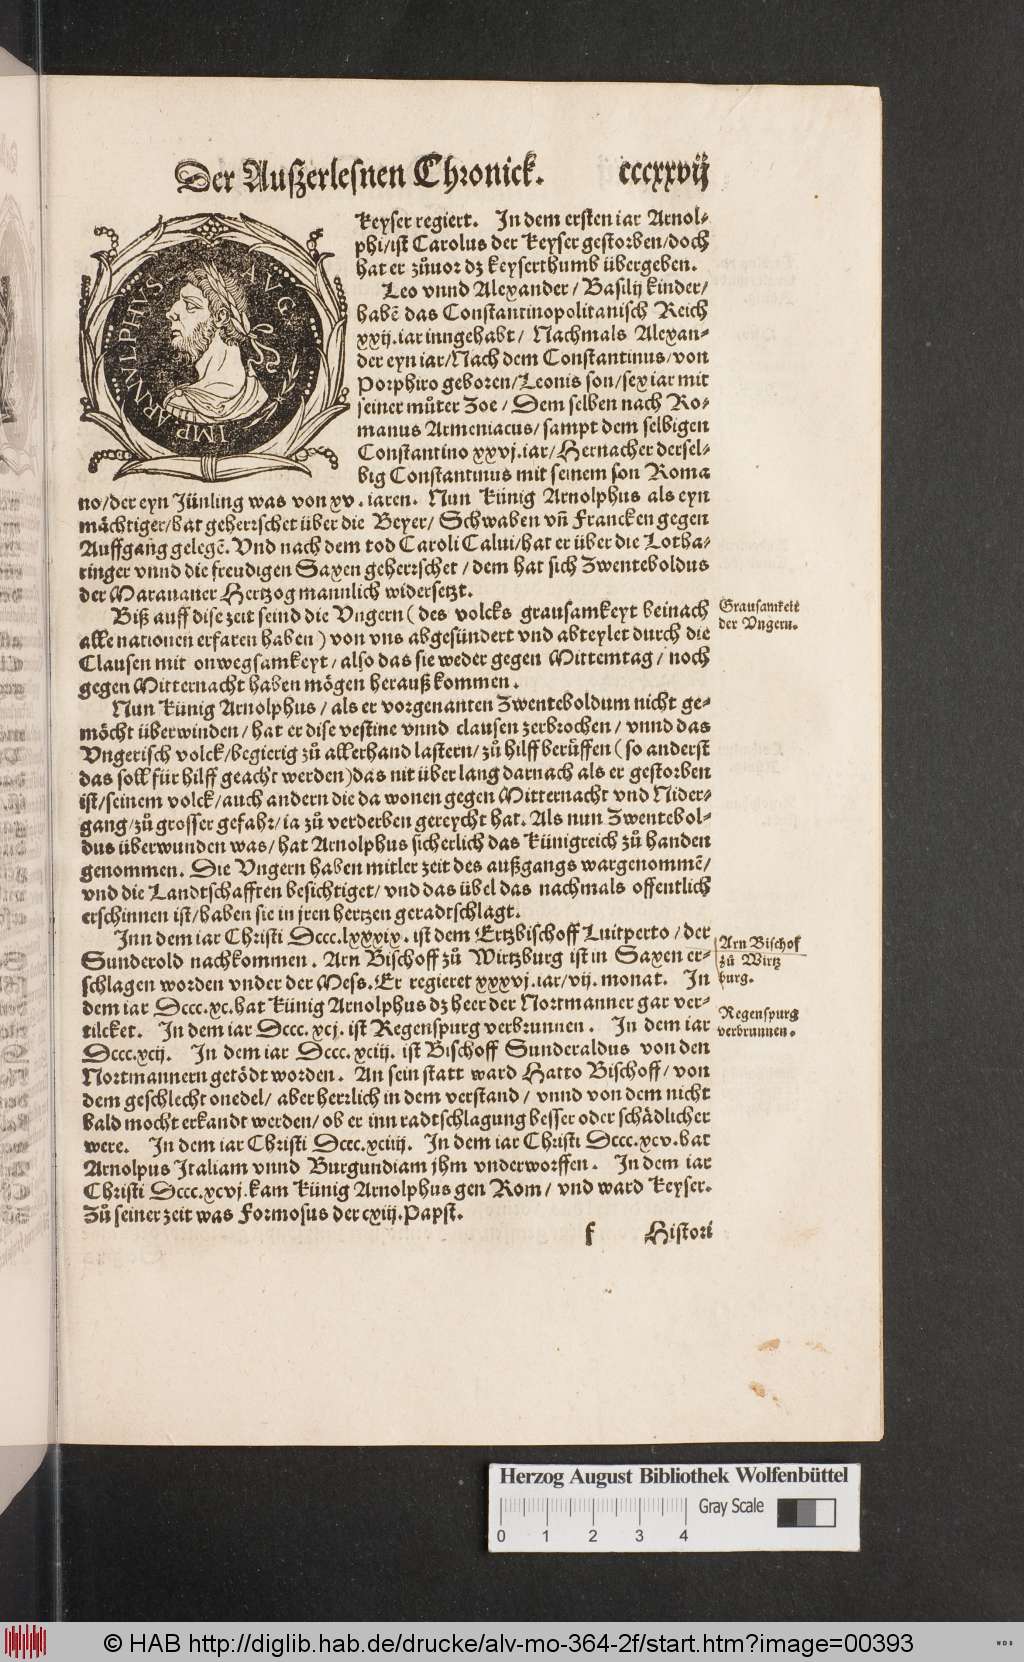 Der Außerlesnen Chronick. cccxxvij
IMP. ARNVLPHVS AVG.
Keyser regiert. In dem ersten iar Arnol-
phi/ist Carolus der Keyser gestorben/doch
hat er zůuor dz keyserthumb übergeben.
Leo vnnd Alexander / Basilij kinder/
habẽ das Constantinopolitanisch Reich
xxij.iar inngehabt/ Nachmals Alexan-
der eyn iar/Nach dem Constantinus/von
Porphiro geboren/Leonis son/sex iar mit
seiner můter Zoe / Dem selben nach Ro-
manus Armeniacus/ sampt dem selbigen
Constantino xxvj.iar/Hernacher dersel-
big Constantinus mit seinem son Roma
no/der eyn Jünling was von xv . iaren. Nun Künig Arnolphus als eyn
mächtiger/hat geherrschet über die Beyer/ Schwaben vñ Francken gegen
Auffgang gelegẽ. Vnd nach dem tod Caroli Calui/hat er über die Lotha-
ringer vnnd die freudigen Saxen geherrschet / dem hat sich Zwenteboldus
der Marauaner Hertzog mannlich widersetzt.
Biß auff dise zeit seind die Vngern ( des volcks grausamkeyt beinach
alle nationen erfaren haben ) von vns abgesündert vnd abteylet durch die
Clausen mit onwegsamkeyt / also das sie weder gegen Mittemtag / noch
gegen Mitternacht haben mögen herauß kommen .
Grausamkeit
der Vngern.
Nun Künig Arnolphus / als er vorgenanten Zwenteboldum nicht ge-
möcht überwinden / hat er dise vestine vnnd clausen zerbrochen / vnnd das
Vngerisch volck/begierig zů allerhand lastern/zů hilff berůffen ( so anderst
das soll für hilff geacht werden )das nit über lang darnach als er gestorben
ist/seinem volck/auch andern die da wonen gegen Mitternacht vnd Nider-
gang/zů grosser gefahr/ia zů verderben gereycht hat. Als nun Zwentebol-
dus überwunden was/ hat Arnolphus sicherlich das Künigreich zů handen
genommen . Die Vngern haben mitler zeit des außgangs wargenommẽ/
vnd die Landtschafften besichtiget/ vnd das übel das nachmals offentlich
erschinnen ist/haben sie in jren hertzen geradtschlagt.
Inn dem iar Christi Dccc.lxxxix. ist dem Ertzbischoff Luitperto / der
Sunderold nachkommen . Arn Bischoff zů Wirtzburg ist in Saxen er-
schlagen worden vnder der Mess. Er regieret xxxvj.iar/vij. monat. In
dem iar Dccc.xc.hat Künig Arnolphus dz heer der Nortmanner gar ver-
tilcket. In dem iar Dccc. xcj. ist Regenspurg verbrunnen . In dem iar
Dccc.xcij. In dem iar Dccc. xciij. ist Bischoff Sunderaldus von den
Nortmannern getödt worden . An sein statt ward Hatto Bischoff/ von
dem geschlecht onedel/ aber herrlich in dem verstand / vnnd von dem nicht
bald mocht erkandt werden/ ob er inn radtschlagung besser oder schädlicher
were. In dem iar Christi Dccc.xciiij. In dem iar Christi Dccc.xcv.hat
Arnolpus Italiam vnnd Burgundiam jhm vnderworffen . In dem iar
Christi Dccc.xcvj.kam Künig Arnolphus gen Rom/ vnd ward Keyser.
Zů seiner zeit was Formosus der cxiij.Papst.
Arn Bischof
zů Wirtz
burg.
Regenspurg
verbrunnen.
f Histori
Herzog August Bibliothek Wolfenbüttel
Gray Scale
0 1 2 3 4
© HAB http://diglib.hab.de/drucke/alv-mo-364-2f/start.htm?image=00393